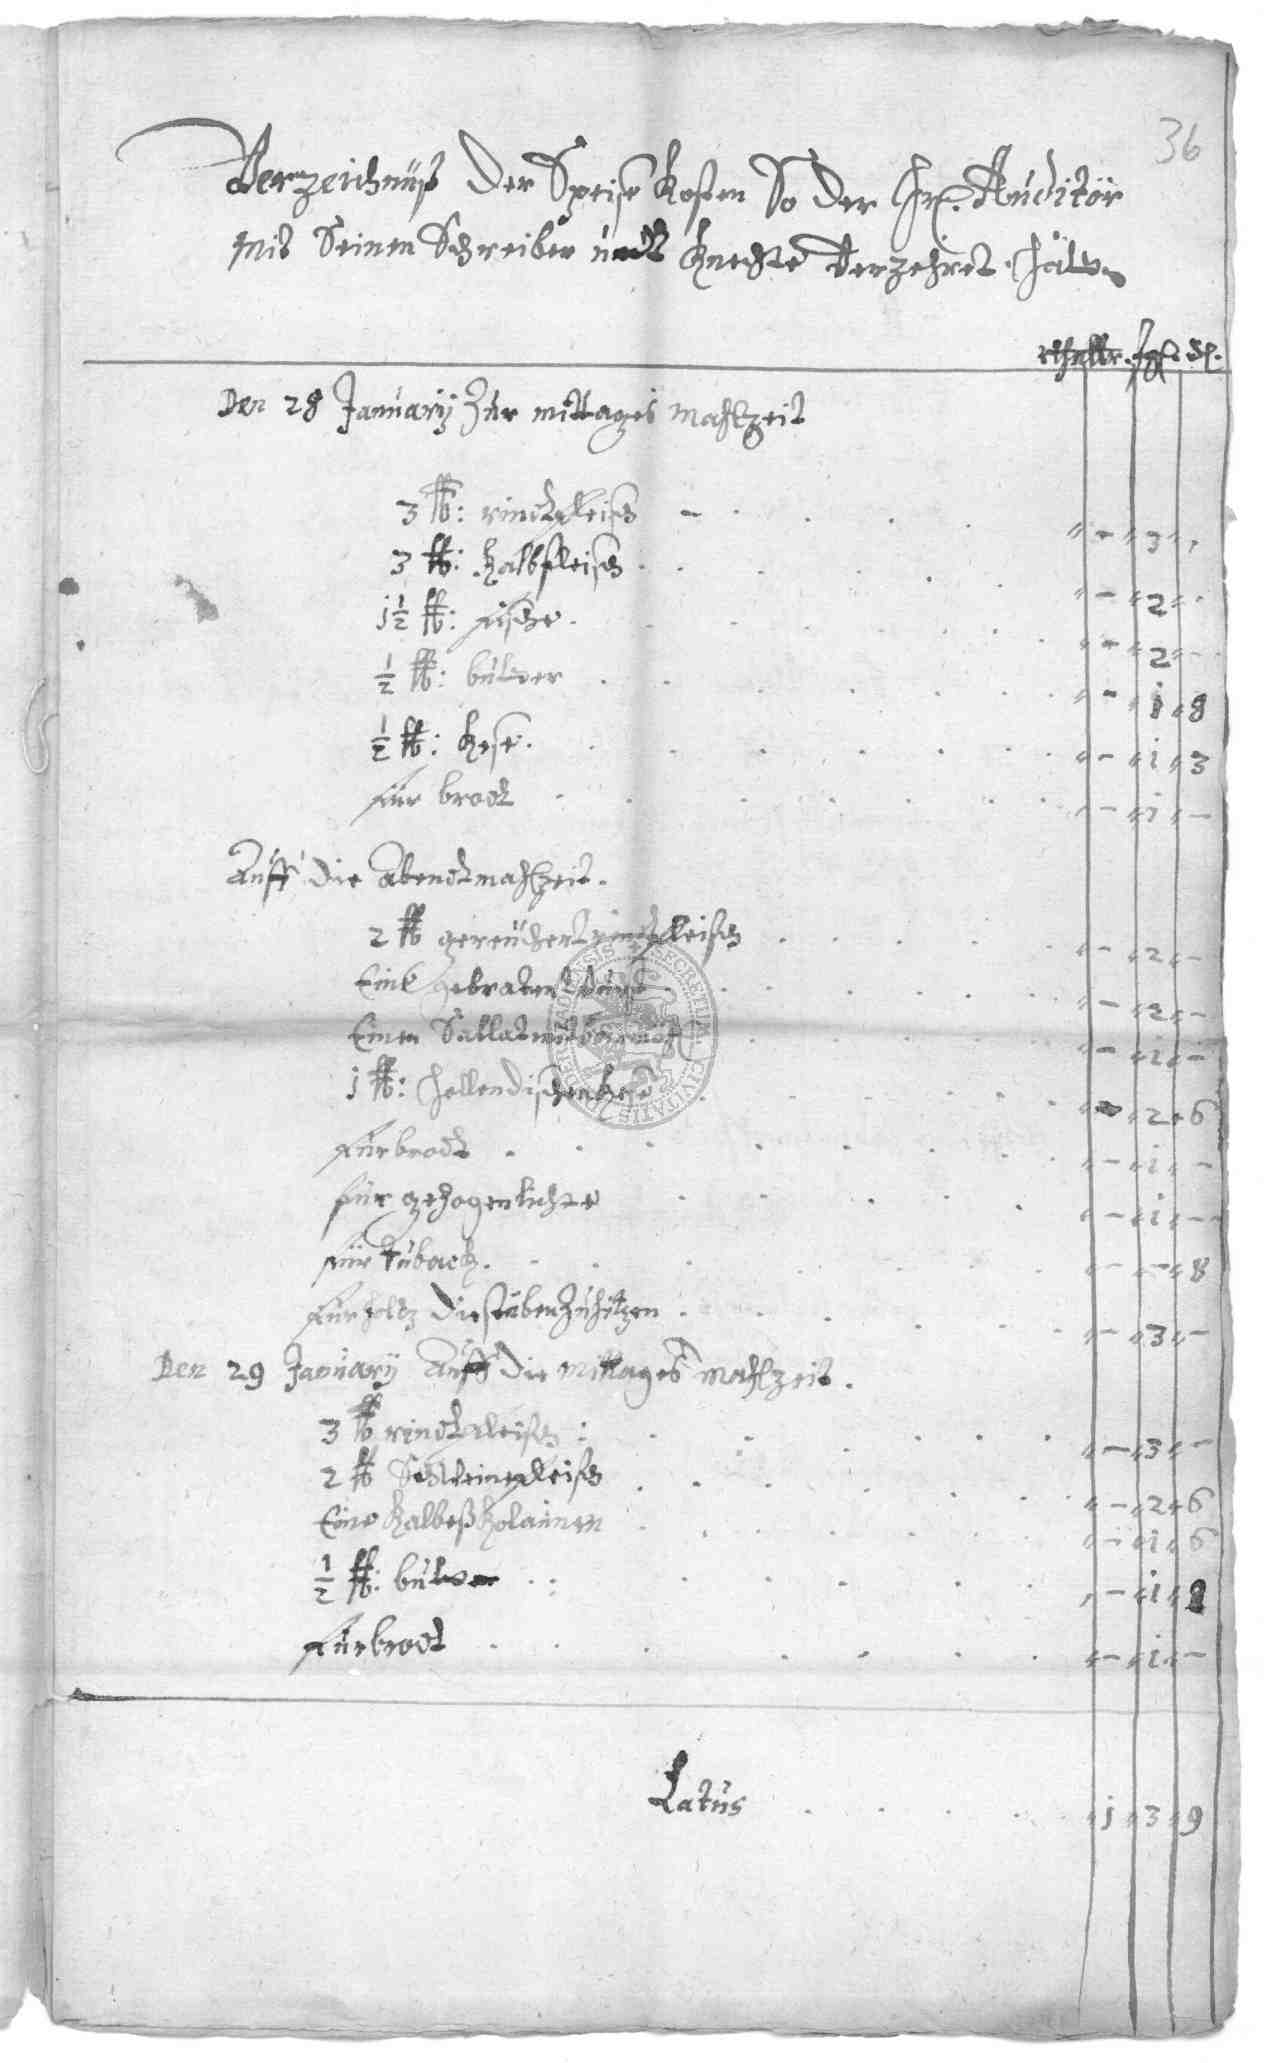 36
Verzeichnüß der Speise Kosten So der Hr. Auditör
Mit Seinen Schreiber undt Knechte Verzehret
rthallr. sgl. d.
Den 28 January Zur mittages Mahlzeit
3 ℔: rindtfleisch - " - " 3 " "
3 ℔: Kalbfleisch " - " 2 " "
j½ ℔: fische " - " 2 " -
½ ℔: butter " - " i " 8
½ ℔: Kese " - " i " 3
für brodt " - " i " -
Auff die Abendtmahlzeit.
2 ℔ gereuchert rindtfleisch " - " 2 " -
Eine gebratene " - " 2 " -
Einen Sallat mit " - " i " -
j ℔: hollendischen Kese " - " 2 " 6
für brodt " - " i " -
für gezogen lichte " - " i " -
für tuback " - " - " 8
für holtz die stuben Zuhitzen " - " 3 " -
Den 29 January Auff die Mittages mahlzeit.
3 ℔ rindtfleisch " - " 3 " -
2 ℔ Schweinefleisch " - " 2 " 6
Eine Kalbeß Kolaunen " - " i " 6
½ ℔: butter " - " i " 8
für brodt " - " i " -
Latus " j " 3 " 9
SECRETUM CIVITATIS